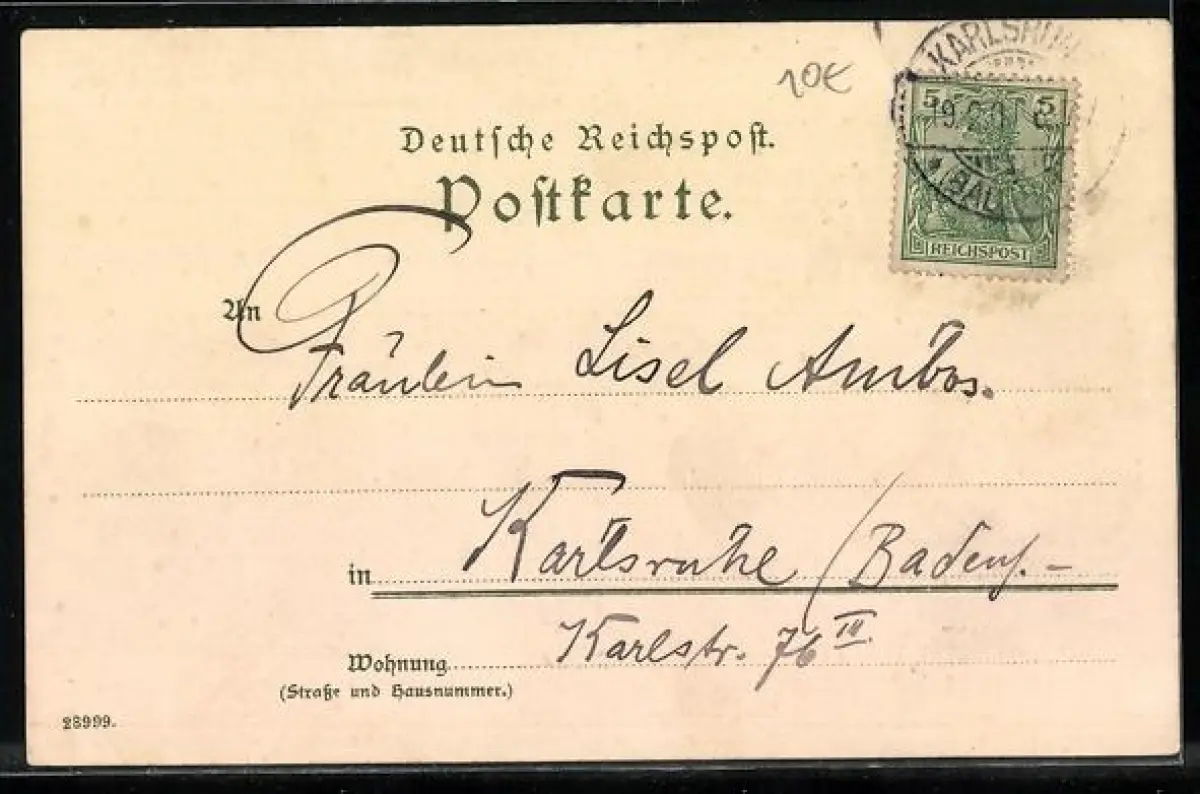 10€
KARLSRUH
5 5
(BAD
REICHSPOST
Deutsche Reichspost.
Postkarte.
An
Fräulein Lisel Ambos.
in Karlsruhe / Baden.-
Karlstr. 76 III.
Wohnung
(Straße und Hausnummer.)
28999.